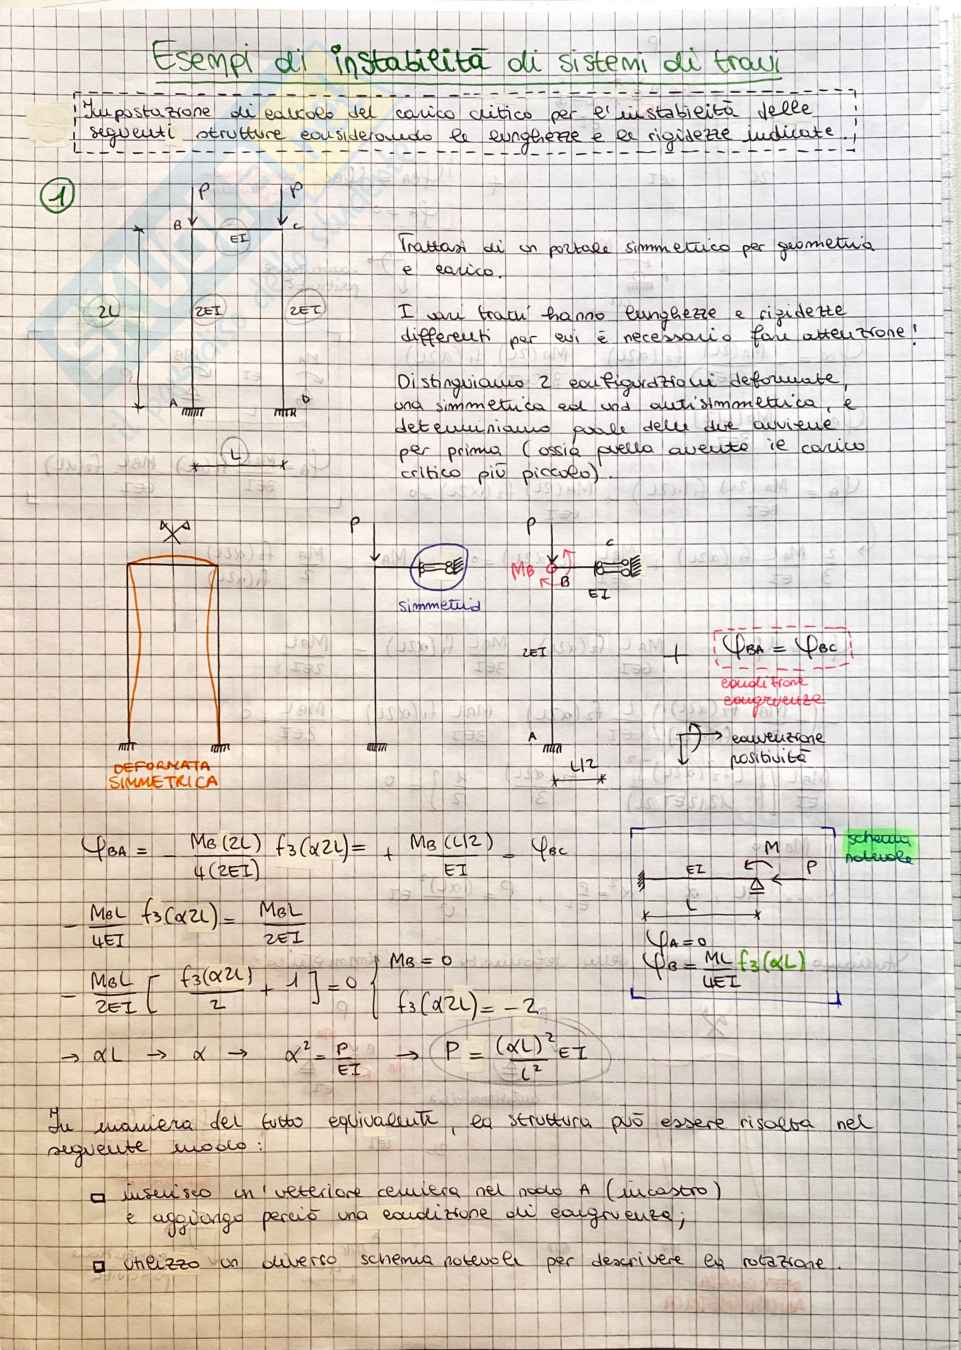 Esempi di instabilità di sistemi di travi
Impostazione di calcolo del carico critico per l'instabilità delle
seguenti strutture considerando le lunghezze e le rigidezze indicate.
1
P P
B C
EI
2L 2EI 2EI
A D
L
Trattasi di un portale simmetrico per geometria
e carico.
I vari travi hanno lunghezze e rigidezze
differenti per cui è necessario fare attenzione!
Distinguiamo 2 configurazioni deformate,
una simmetrica ed una antisimmetrica, e
determiniamo quale delle due avviene
per prima (ossia quella avente il carico
critico più piccolo).
DEFORMATA
SIMMETRICA
P
simmetria
P
C
MB B
EI
2EI
A
L/2
+ φBA = φBC
condizione
congruenza
convenzione
positività
φBA = - MB(2L)/4(2EI) f3(α2L) = + MB(L/2)/EI = φBC
- MBL/4EI f3(α2L) = MBL/2EI
- MBL/2EI [ f3(α2L)/2 + 1 ] = 0 { MB = 0
f3(α2L) = -2
→ αL → α → α² = P/EI → P = (αL)²/L² EI
schema
notevole
M
EI P
L
φA = 0
φB = ML/4EI f3(αL)
In maniera del tutto equivalente, la struttura può essere risolta nel
seguente modo:
inserisco un'ulteriore cerniera nel nodo A (incastro)
e aggiungo perciò una condizione di congruenza;
utilizzo un diverso schema notevole per descrivere la rotazione.